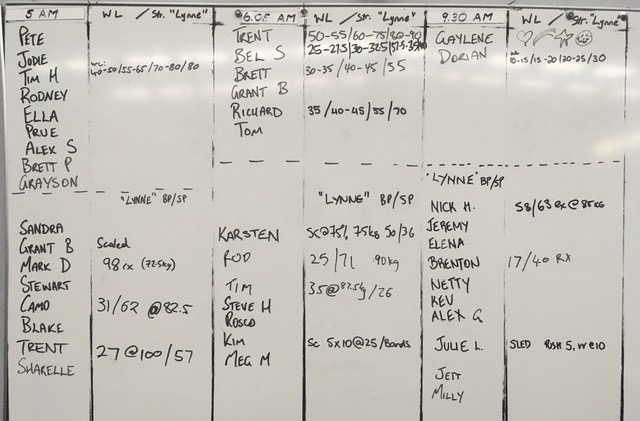 5 AM WL / Str. "Lynne"
PETE
JODIE
TIM H WL: 40-50/55-65/70-80/80
RODNEY
ELLA
PRUE
ALEX S
BRETT P
GRAYSON
"LYNNE" BP/SP
SANDRA
GRANT B Scaled
MARK D 98 rx (72.5kg)
STEWART
CAMO 31/62 @82.5
BLAKE
TRENT 27@100/57
SHARELLE
6.05 AM WL / Str. "Lynne"
TRENT 50-55/60-75/80-90
BEL S
BRETT 30-35/40-45/55
GRANT B
RICHARD 35/40-45/55/70
TOM
"LYNNE" BP/SP
KARSTEN SC@75% 75kg 50/36
ROD 25/71 90kg
TIM 35@87.5kg/26
STEVE H
ROSCO
KIM Sc 5x10@25/Bands
MEG M
9.30 AM WL / Str. "Lynne"
GAYLENE
DORIAN WL 10-15/15-20/20-25/30
"LYNNE" BP/SP
NICK H. 58/63 Rx @ 85KG
JEREMY
ELENA
BRENTON 17/40 RX
NETTY
KEV
ALEX G
JULIE L. SLED
JETT
MILLY